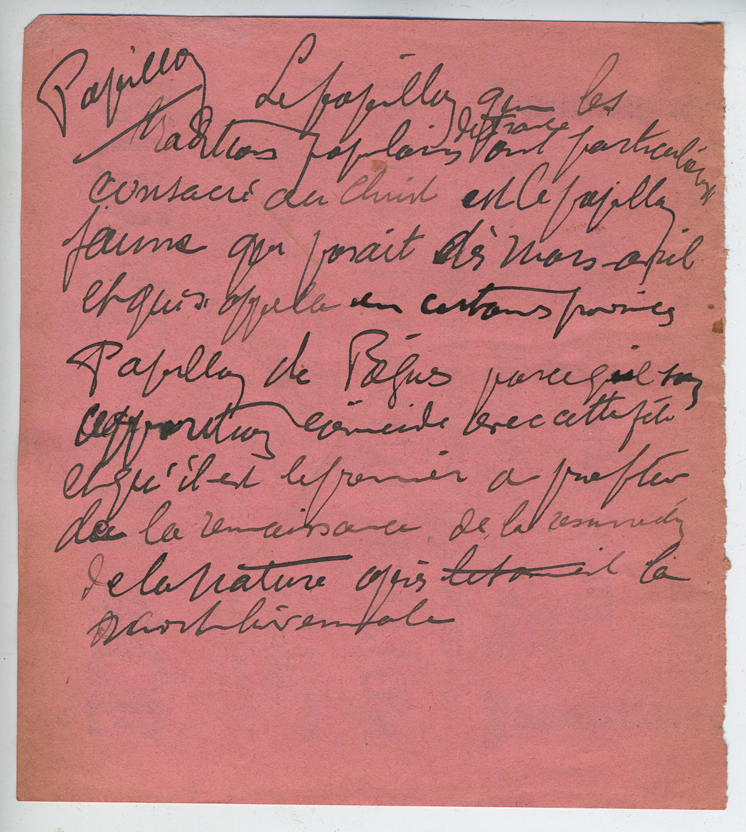 Papillon Le papillon que les
traditions populaires de France ont particulièrement
consacré au Christ est le papillon
jaune qui paraît dès mars-avril
et qu'on appela en certaines provinces
Papillon de Pâques parce que son
apparition coïncide avec cette fête
et qu'il est le premier à profiter
de la renaissance de la
de la nature après le sommeil la
mort hivernale